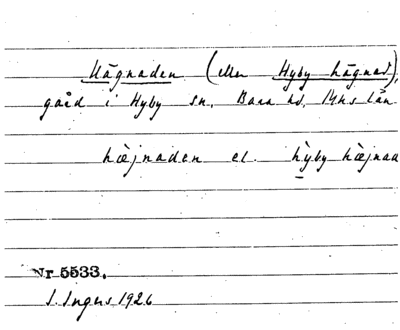 Hägnaden (eller Hyby hägnad),
gård i Hyby sn, Bara hd, Mhs län
hèjnaden el. hỳby hèjnad
Nr 5533.
I. Ingers 1926